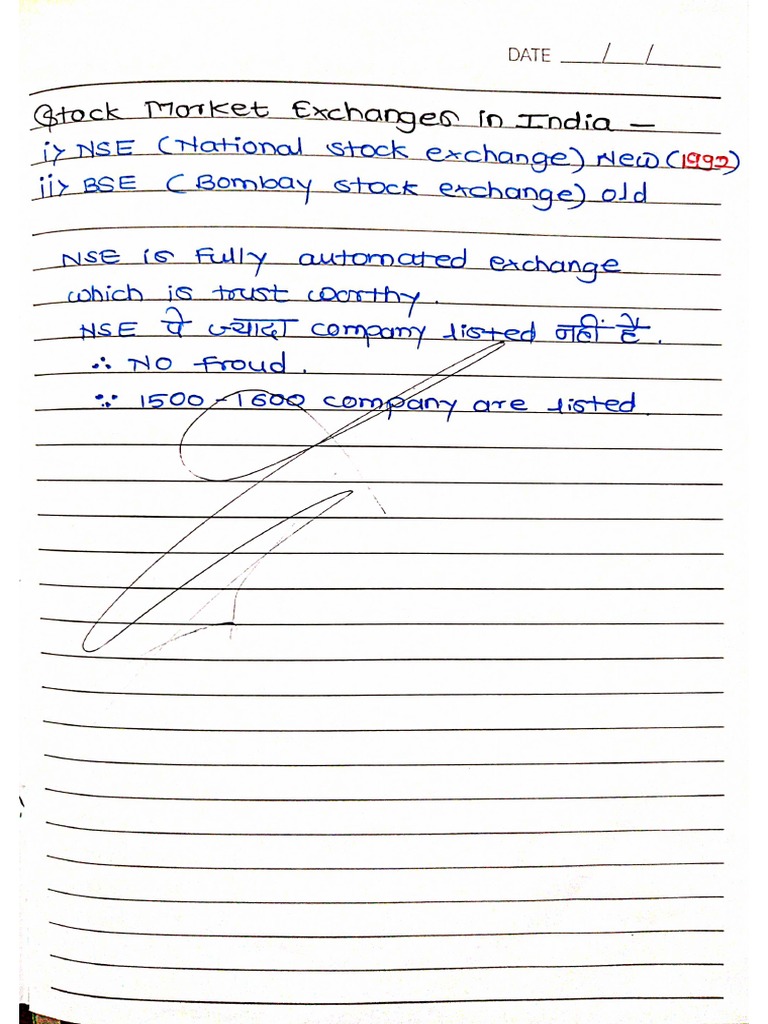 DATE / /
Stock Market Exchanges in India —
i> NSE (National stock exchange) New (1992)
ii> BSE (Bombay stock exchange) old
NSE is Fully automated exchange
which is trust worthy.
NSE पे ज्यादा company listed नहीं है.
∴ No froud.
∵ 1500-1600 company are listed.